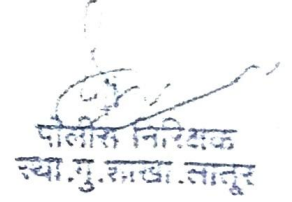 पोलीस निरिक्षक
स्था.गु.शाखा.लातूर